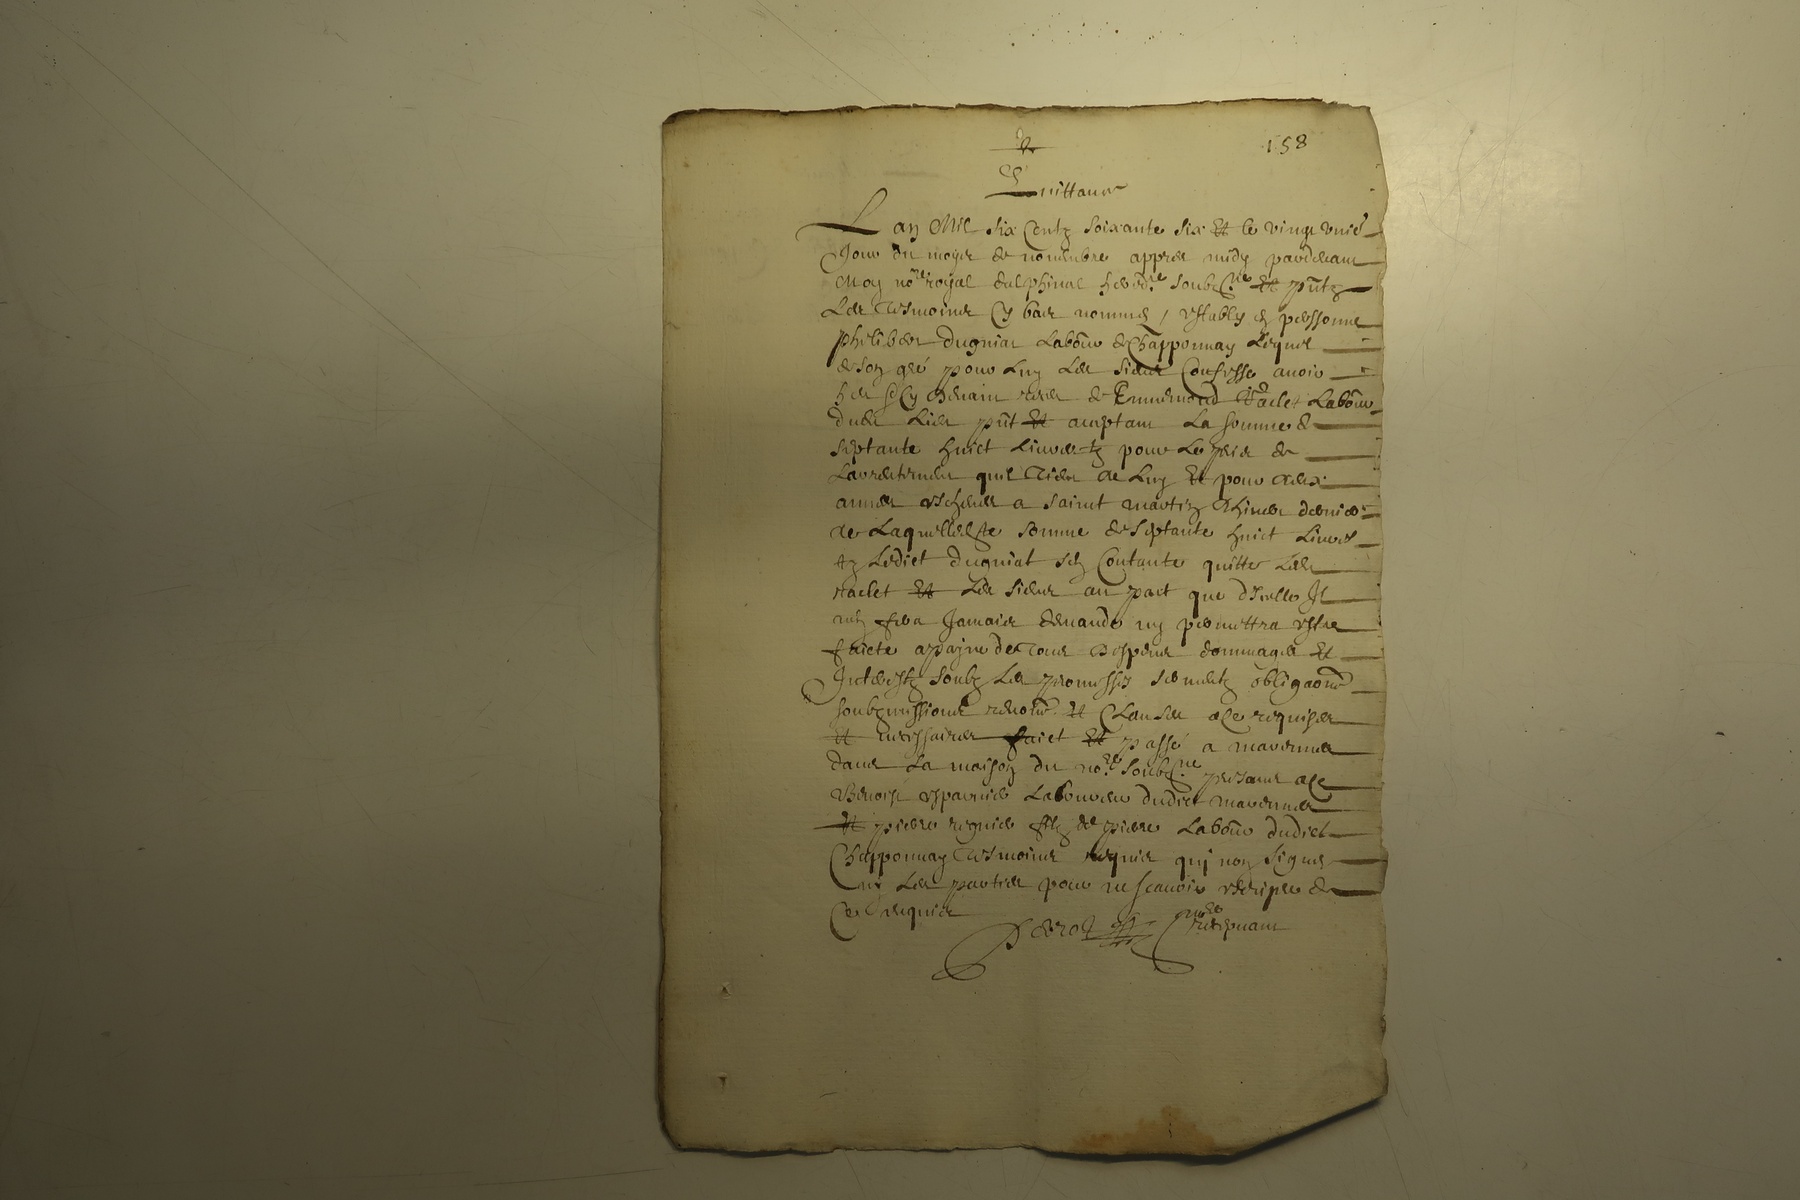 158
Quittance
L an Mil six Centz soixante six et le vingt unie
Jour du moys de novembre appres midy pardevant
Moy no.re royal dalphinal hered.re soubz.ne et pntz
Les tesmoins Cy bas nommes / estably en personne
philiber dugniat Labour de Chapponnay Lequel
de son gré pour Luy Les siens Confesse avoir
heu Cy devant de Ennemond Labour
dud Lieu pnt et aceptant La somme de
septante huict Livres tz pour Le pris de
quil tient de Luy et pour deux
annes escheues a saint martin dernier
de Laquelle somme de septante huict Livres
tz Ledict dugniat sen Contante quitte Led
et Les siens au pact que dIcelle Il
nen fera Jamais demande ny permettra estre
faicte a payne de tous despens dommages et
Interestz soubz Les promesses sermentz obligaons
soubzmissions renons et Clauses a ce requises
et necessaires faict et passé a marennes
dans La maison du no.re soubz.ne presans a ce
Benoist Laboureur dudict marennes
et pierre filz de pierre Labour dudict
Chapponnay tesmoins requis quj non signe
ny Les parties pour ne scavoir de
Ce requis